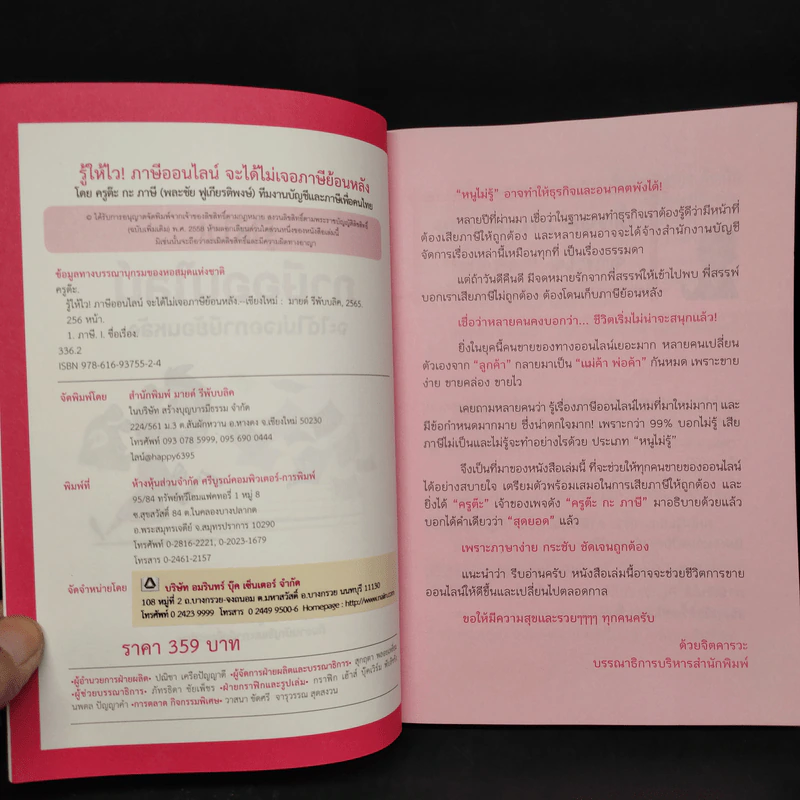 รู้ให้ไว! ภาษีออนไลน์ จะได้ไม่เจอภาษีย้อนหลัง
โดย ครูต๊ะ กะ ภาษี (พละชัย ฟูเกียรติพงษ์) ทีมงานบัญชีและภาษีเพื่อคนไทย
© ได้รับการอนุญาตจัดพิมพ์จากเจ้าของลิขสิทธิ์ตามกฎหมาย สงวนลิขสิทธิ์ตามพระราชบัญญัติลิขสิทธิ์
(ฉบับเพิ่มเติม) พ.ศ. 2558 ห้ามลอกเลียนส่วนใดส่วนหนึ่งของหนังสือเล่มนี้
มิเช่นนั้นจะถือว่าละเมิดลิขสิทธิ์และมีความผิดทางอาญา
ข้อมูลทางบรรณานุกรมของหอสมุดแห่งชาติ
ครูต๊ะ.
รู้ให้ไว! ภาษีออนไลน์ จะได้ไม่เจอภาษีย้อนหลัง.--เชียงใหม่ : มายด์ รีพับบลิค, 2565.
256 หน้า.
1. ภาษี. I. ชื่อเรื่อง.
336.2
ISBN 978-616-93755-2-4
จัดพิมพ์โดย สำนักพิมพ์ มายด์ รีพับบลิค
ในบริษัท สร้างบุญบารมีธรรม จำกัด
224/561 ม.3 ต.สันผักหวาน อ.หางดง จ.เชียงใหม่ 50230
โทรศัพท์ 093 078 5999, 095 690 0444
ไลน์@happy6395
พิมพ์ที่ ห้างหุ้นส่วนจำกัด ศรีบูรณ์คอมพิวเตอร์-การพิมพ์
95/84 ทรัพย์ทวีโฮมแฟคทอรี่ 1 หมู่ 8
ซ.สุขสวัสดิ์ 84 ต.ในคลองบางปลากด
อ.พระสมุทรเจดีย์ จ.สมุทรปราการ 10290
โทรศัพท์ 0-2816-2221, 0-2023-1679
โทรสาร 0-2461-2157
จัดจำหน่ายโดย บริษัท อมรินทร์ บุ๊ค เซ็นเตอร์ จำกัด
108 หมู่ที่ 2 ถ.บางกรวย-จงถนอม ต.มหาสวัสดิ์ อ.บางกรวย นนทบุรี 11130
โทรศัพท์ 0 2423 9999 โทรสาร 0 2449 9500-6 Homepage : http://www.naiin.com
ราคา 359 บาท
•ผู้อำนวยการฝ่ายผลิต• ปณิชา เครือปัญญาดี •ผู้จัดการฝ่ายผลิตและบรรณาธิการ• สุกฤตา
•ผู้ช่วยบรรณาธิการ• ภัทรธิดา ชัยเพ็ชร •ฝ่ายกราฟิกและรูปเล่ม• กราฟิก เฮ้าส์
นพดล ปัญญาคำ •การตลาด กิจกรรมพิเศษ• วาสนา ชัดศรี จารุวรรณ สุดสงวน
“หนูไม่รู้” อาจทำให้ธุรกิจและอนาคตพังได้!
หลายปีที่ผ่านมา เชื่อว่าในฐานะคนทำธุรกิจเราต้องรู้ดีว่ามีหน้าที่
ต้องเสียภาษีให้ถูกต้อง และหลายคนอาจจะได้จ้างสำนักงานบัญชี
จัดการเรื่องเหล่านี้เหมือนทุกที่ เป็นเรื่องธรรมดา
แต่ถ้าวันดีคืนดี มีจดหมายรักจากพี่สรรพ์ให้เข้าไปพบ พี่สรรพ์
บอกเราเสียภาษีไม่ถูกต้อง ต้องโดนเก็บภาษีย้อนหลัง
เชื่อว่าหลายคนคงบอกว่า... ชีวิตเริ่มไม่น่าจะสนุกแล้ว!
ยิ่งในยุคนี้คนขายของทางออนไลน์เยอะมาก หลายคนเปลี่ยน
ตัวเองจาก “ลูกค้า” กลายมาเป็น “แม่ค้า พ่อค้า” กันหมด เพราะขาย
ง่าย ขายคล่อง ขายไว
เคยถามหลายคนว่า รู้เรื่องภาษีออนไลน์ไหมที่มาใหม่มากๆ และ
มีข้อกำหนดมากมาย ซึ่งน่าตกใจมาก! เพราะกว่า 99% บอกไม่รู้ เสีย
ภาษีไม่เป็นและไม่รู้จะทำอย่างไรด้วย ประเภท “หนูไม่รู้”
จึงเป็นที่มาของหนังสือเล่มนี้ ที่จะช่วยให้ทุกคนขายของออนไลน์
ได้อย่างสบายใจ เตรียมตัวพร้อมเสมอในการเสียภาษีให้ถูกต้อง และ
ยิ่งได้ “ครูต๊ะ” เจ้าของเพจดัง “ครูต๊ะ กะ ภาษี” มาอธิบายด้วยแล้ว
บอกได้คำเดียวว่า “สุดยอด” แล้ว
เพราะภาษาง่าย กระชับ ชัดเจนถูกต้อง
แนะนำว่า รีบอ่านครับ หนังสือเล่มนี้อาจจะช่วยชีวิตการขาย
ออนไลน์ให้ดีขึ้นและเปลี่ยนไปตลอดกาล
ขอให้มีความสุขและรวยๆๆๆๆ ทุกคนครับ
ด้วยจิตคารวะ
บรรณาธิการบริหารสำนักพิมพ์